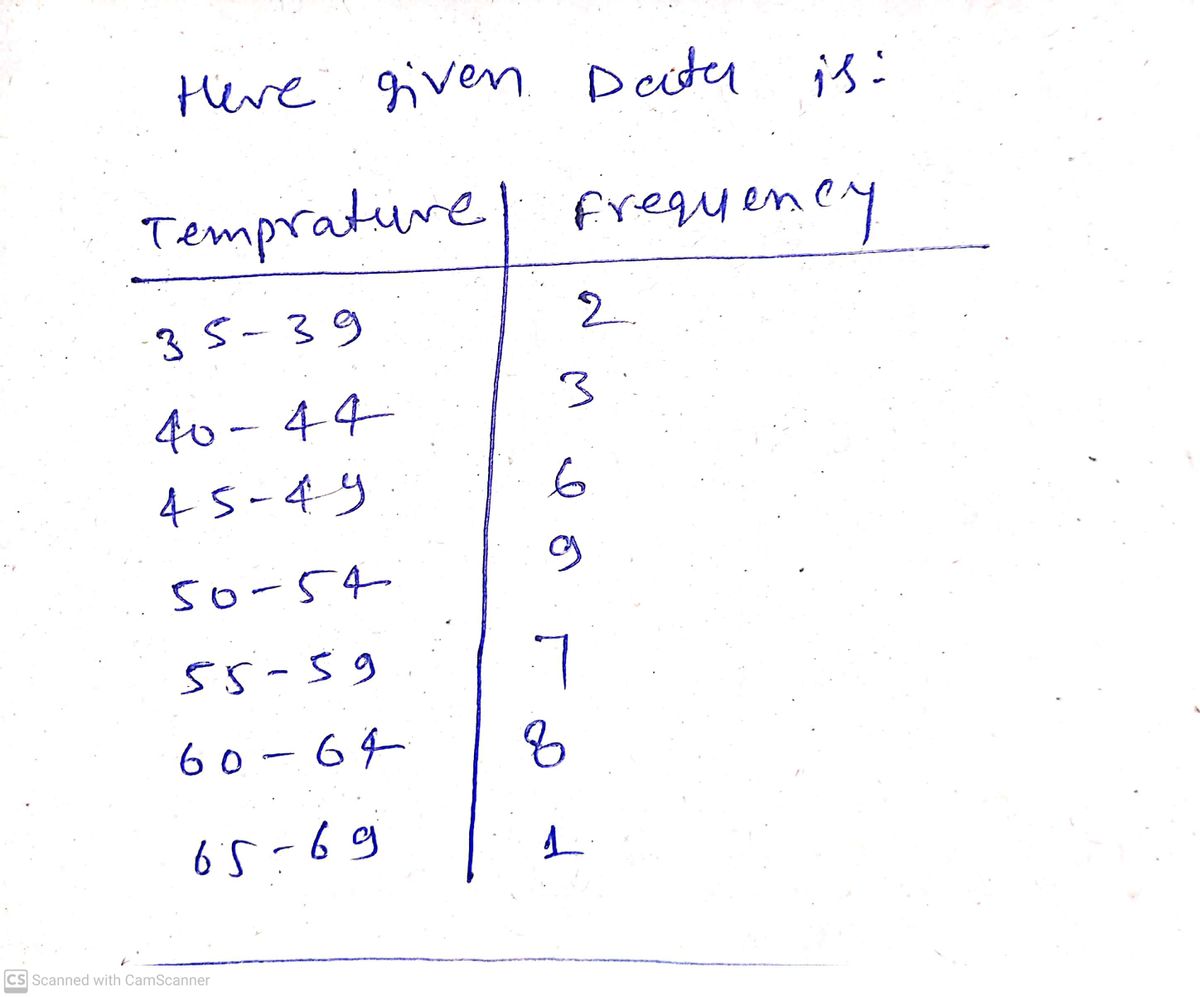 Here given Data is:
Temprature Frequency
35-39 2
40-44 3
45-49 6
50-54 9
55-59 7
60-64 8
65-69 1
CS Scanned with CamScanner